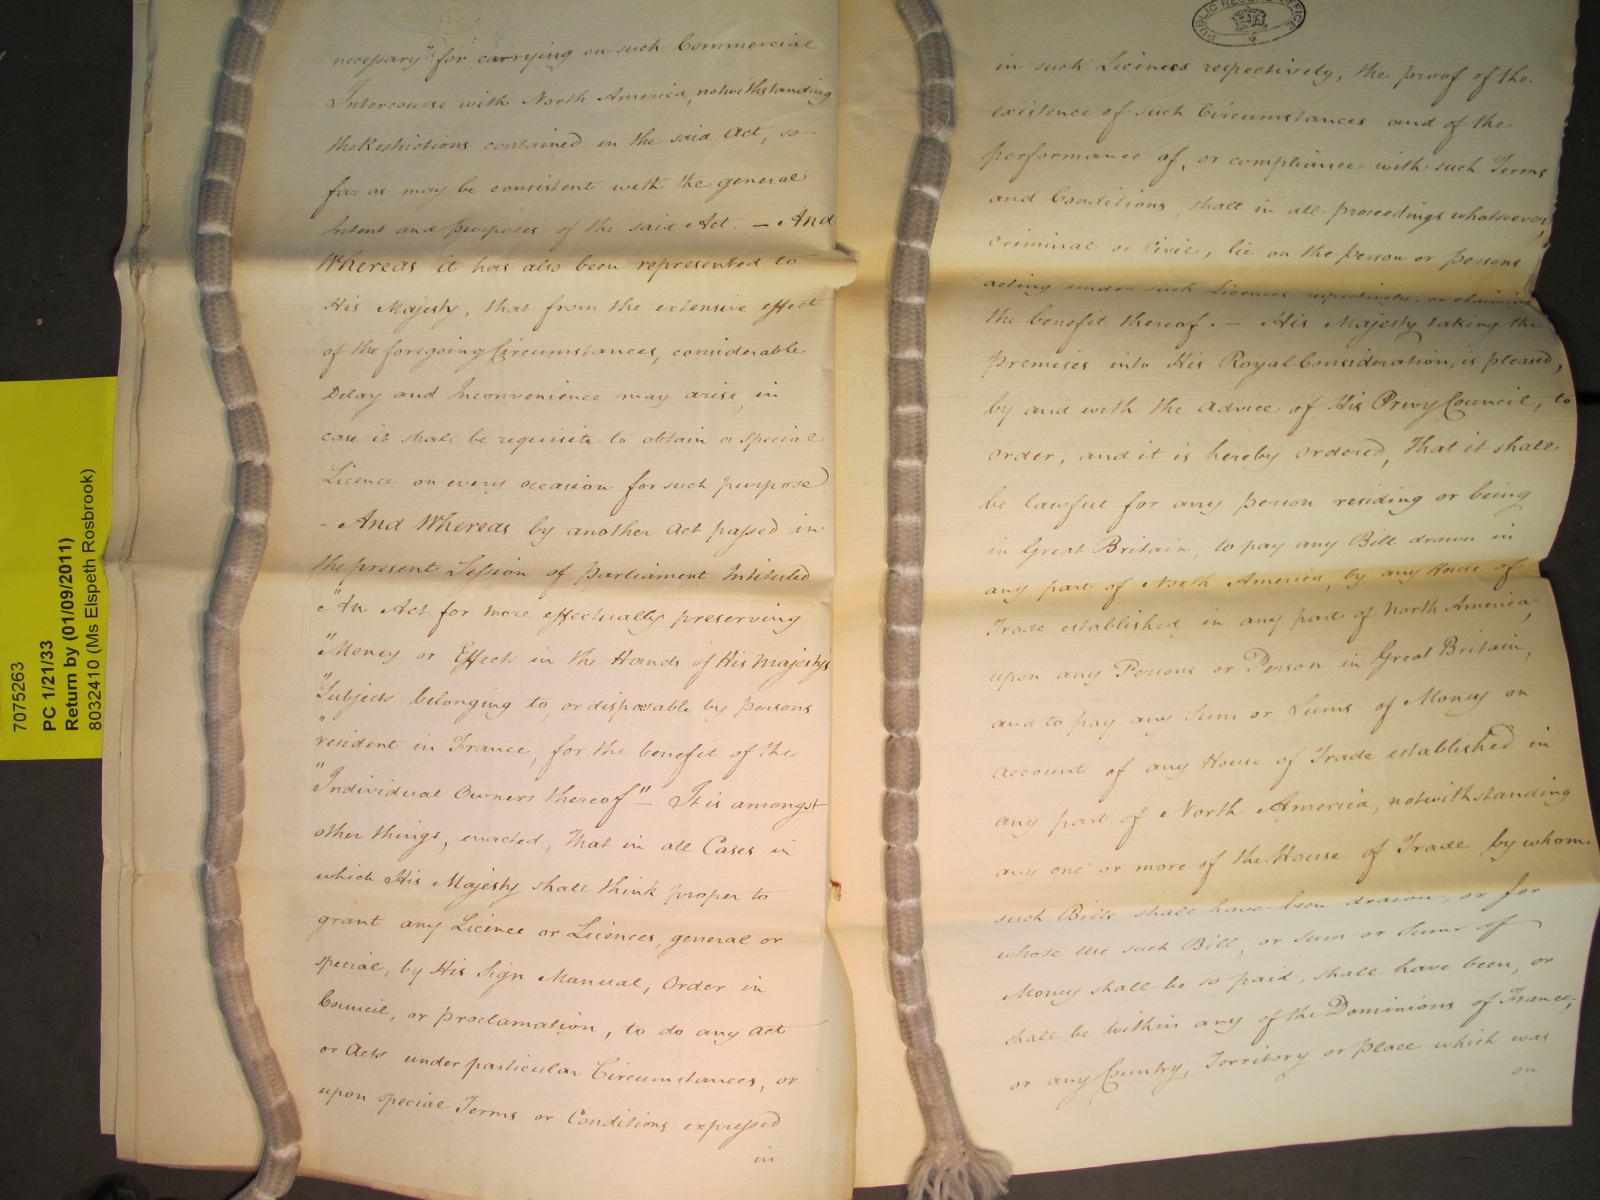 7075263
PC 1/21/33
Return by (01/09/2011)
8032410 (Ms Elspeth Rosbrook)
necessary" for carrying on such Commercial
Intercourse with North America, notwithstanding
the Restrictions contained in the said Act, so
far as may be consistent with the general
Intent and purposes of the said Act. — And
Whereas it has also been represented to
His Majesty, that from the extensive effect
of the foregoing Circumstances, considerable
Delay and Inconvenience may arise, in
case it shall be requisite to obtain a special
Licence on every occasion for such purpose
- And Whereas by another Act passed in
the present Session of Parliament Intituled
"An Act for more effectually preserving
"Money or Effects in the Hands of His Majesty's
"Subjects belonging to, or disposable by persons
"resident in France, for the benefit of the
"Individual Owners thereof" — It is amongst
other things, enacted, that in all Cases in
which His Majesty shall think proper to
grant any Licence or Licences, general or
special, by His Sign Manual, Order in
Council, or proclamation, to do any Act
or Acts under particular Circumstances, or
upon special Terms or Conditions expressed
in
PUBLIC RECORD OFFICE
in such Licences respectively, the proof of the
existence of such Circumstances and of the
performance of, or compliance with such Terms
and Conditions, shall in all proceedings whatsoever,
criminal or Civil, lie on the person or persons
acting under such Licences respectively, or claiming
the benefit thereof. — His Majesty taking the
premises into His Royal Consideration, is pleased,
by and with the advice of His Privy Council, to
order, and it is hereby ordered, That it shall
be lawful for any person residing or being
in Great Britain, to pay any Bill drawn in
any part of North America, by any House of
Trade established in any part of North America,
upon any Persons or Person in Great Britain,
and to pay any Sum or Sums of Money on
account of any House of Trade established in
any part of North America, notwithstanding
any one or more of the House of Trade by whom
such Bills shall have been drawn, or for
whose use such Bill, or Sum or Sums of
Money shall be so paid, shall have been, or
shall be within any of the Dominions of France,
or any Country, Territory or place which was
on